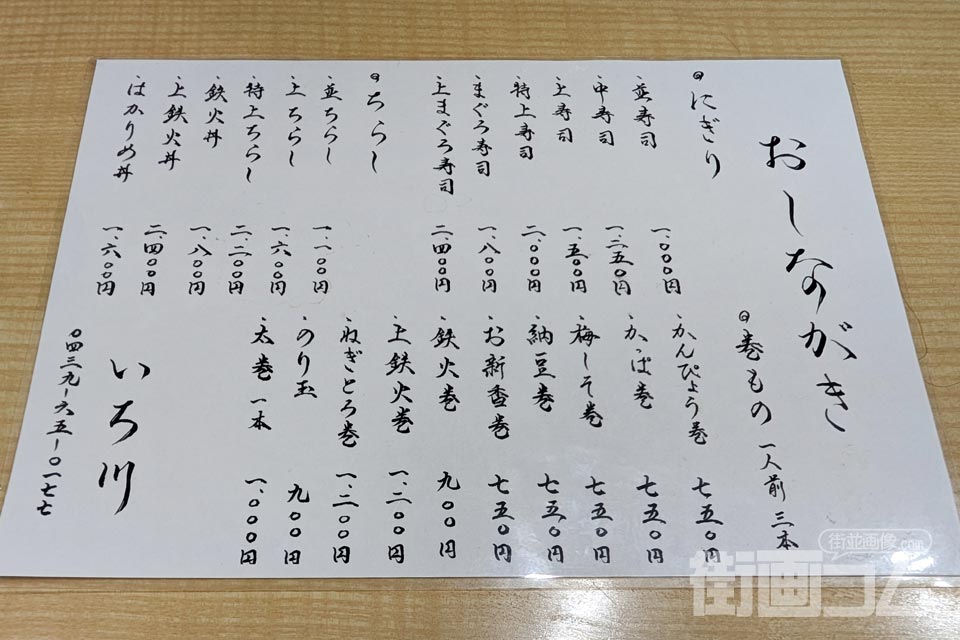 おしながき
◎にぎり
・並寿司 一、〇〇〇円
・中寿司 一、二五〇円
・上寿司 一、五〇〇円
・特上寿司 二、〇〇〇円
・まぐろ寿司 一、八〇〇円
・上まぐろ寿司 二、四〇〇円
◎ちらし
・並ちらし 一、一〇〇円
・上ちらし 一、六〇〇円
・特上ちらし 二、二〇〇円
・鉄火丼 一、八〇〇円
・上鉄火丼 二、四〇〇円
・はかりめ丼 一、六〇〇円
◎巻もの 一人前 三本
・かんぴょう巻 七五〇円
・かっぱ巻 七五〇円
・梅しそ巻 七五〇円
・納豆巻 七五〇円
・お新香巻 七五〇円
・鉄火巻 九〇〇円
・上鉄火巻 一、二〇〇円
・ねぎとろ巻 一、二〇〇円
・のり玉 九〇〇円
・太巻一本 一、〇〇〇円
いろ川
〇四三九-六五-〇一七七
街並画像.com
街画コム